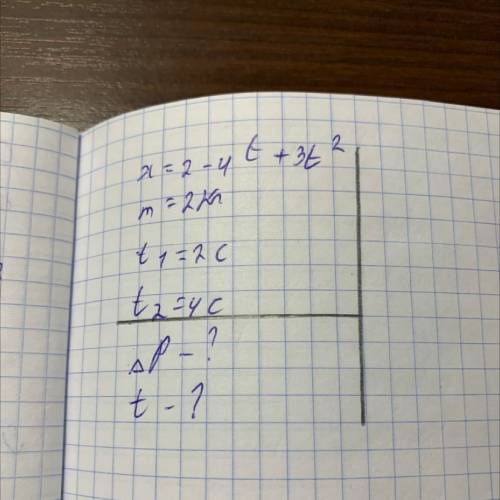 x = 2 - 4t + 3t²
m = 2кг
t₁ = 2с
t₂ = 4с
ΔP - ?
t - ?